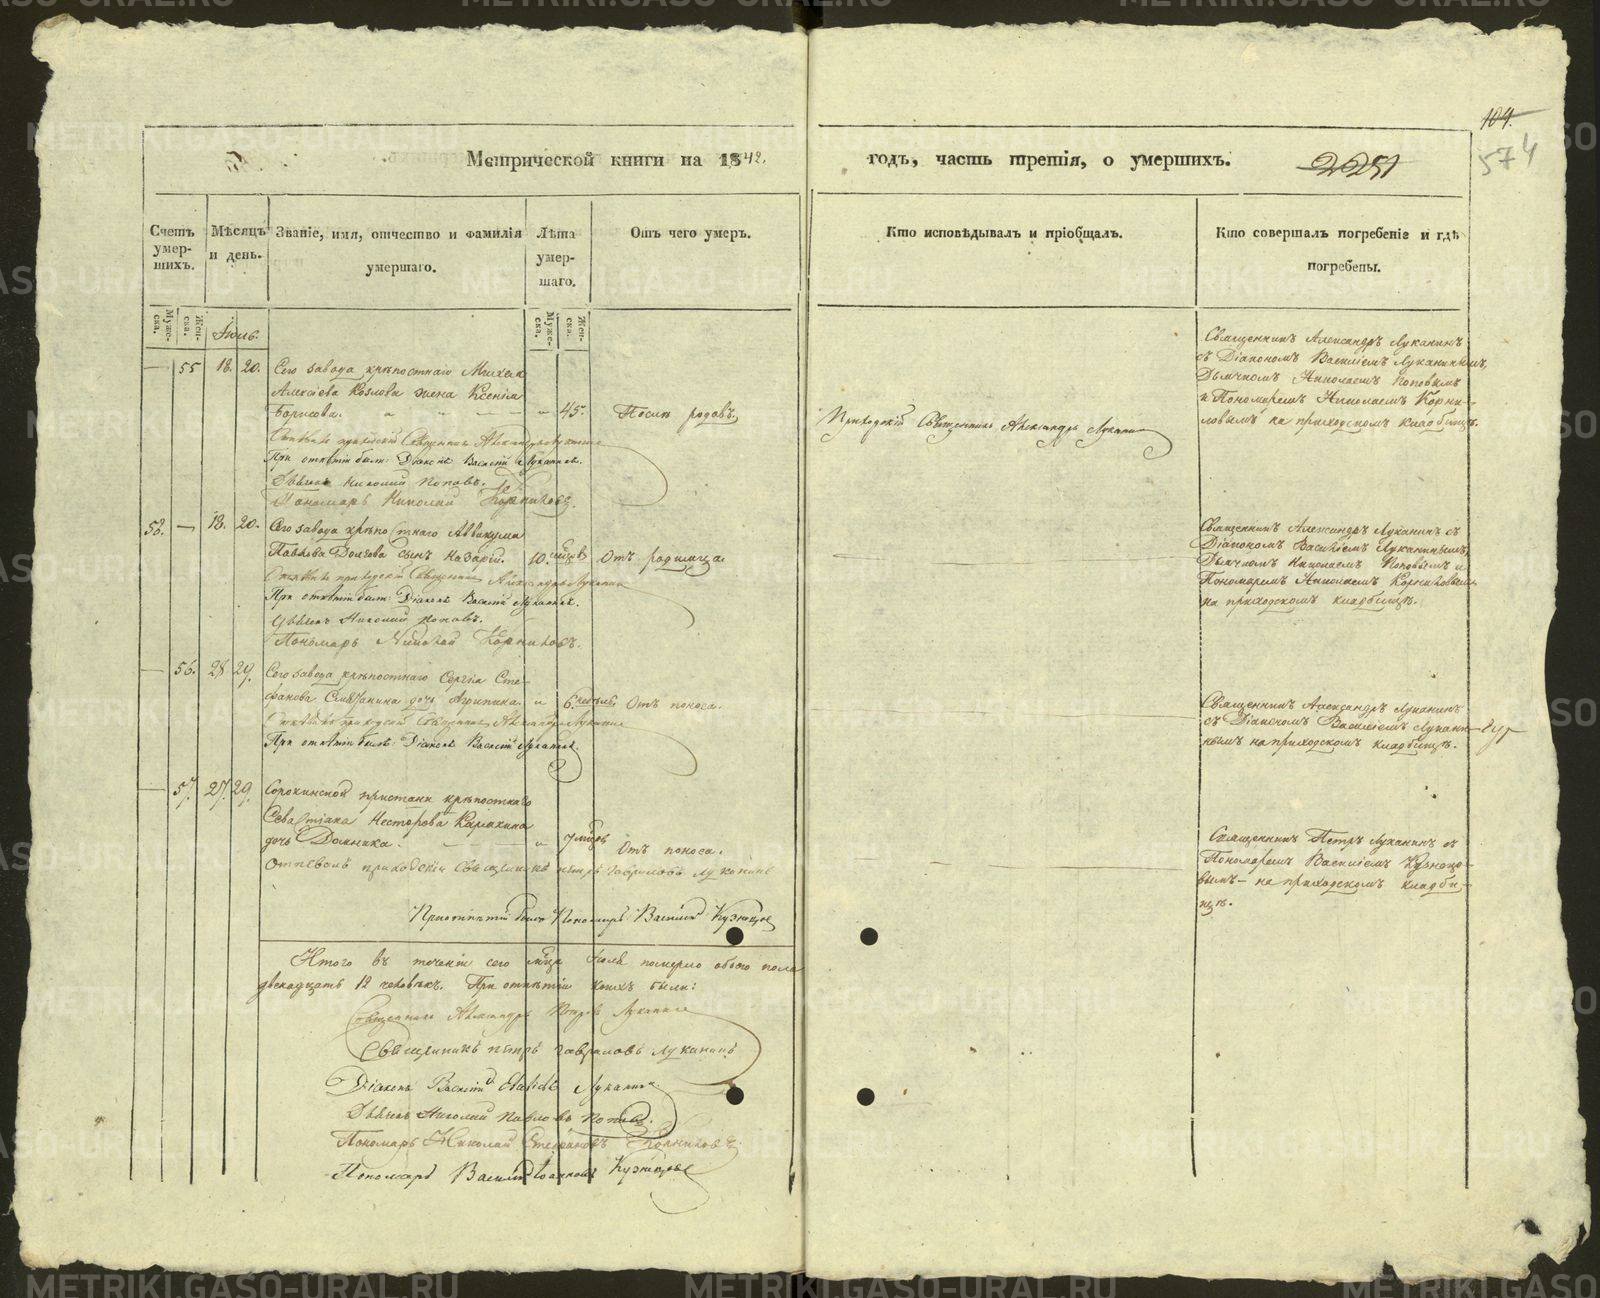 Метрической книги на 1842.
годъ, часть третія, о умершихъ.
2251
104.
574
Счетъ умер-шихъ.
Мѣсяцъ и день.
Званіе, имя, отчество и фамилія умершаго.
Лѣта умер-шаго.
Отъ чего умеръ.
Кто исповѣдывалъ и пріобщалъ.
Кто совершалъ погребеніе и гдѣ погребены.
Муже-ска.
Жен-ска.
Іюль.
Муже-ска.
Жен-ска.
— 55 18. 20.
Сего завода крѣпостнаго Михаила
Алексѣева Козлова жена Ксенія
Борисова. 45. Послѣ родовъ.
Приходскій Священникъ Александръ Луканинъ
Священникъ Александръ Луканинъ
съ Діакономъ Василіемъ Луканинымъ,
Дьячкомъ Николаемъ Поповымъ
и Пономаремъ Николаемъ Корни-
ловымъ на приходскомъ кладбищѣ.
Отпѣвалъ приходскій Священникъ Александръ Луканинъ
При отпѣтіи былъ: Діаконъ Василій Луканинъ.
Дьячекъ Николай Поповъ.
Пономарь Николай
58. — 18. 20.
Сего завода крѣпостнаго Аввакума
Павлова Долгова сынъ Назарій. 10. мѣсяцовъ Отъ родимца.
Священникъ Александръ Луканинъ съ
Діакономъ Василіемъ Луканинымъ,
Дьячкомъ Николаемъ Поповымъ и
Пономаремъ Николаемъ
на приходскомъ кладбищѣ.
Отпѣвалъ приходскій Священникъ Александръ Луканинъ
При отпѣтіи былъ: Діаконъ Василій Луканинъ.
Дьячекъ Николай Поповъ.
Пономарь Николай
— 56. 28 29.
Сего завода крѣпостнаго Сергія Сте-
фанова дочь Агрипина. 6. недѣль Отъ поноса.
Священникъ Александръ Луканинъ
съ Діакономъ Василіемъ Лукани-
нымъ на приходскомъ кладбищѣ.
Отпѣвалъ приходскій Священникъ Александръ Луканинъ
При отпѣтіи былъ: Діаконъ Василій Луканинъ.
— 57. 27. 29.
Сорокинской пристани крѣпостнаго
Севастіана Несторова Калакина
дочь Домника. 7 мѣсяцовъ Отъ поноса.
Священникъ Петръ Луканинъ съ
Пономаремъ Василіемъ Кузнецо-
вымъ — на приходскомъ кладби-
щѣ.
Отпевалъ приходскій Священникъ Петръ Гавриловъ Луканинъ
При отпѣтіи былъ Пономарь Василій Кузнецовъ
Итого въ теченіи сего мѣсяца Іюля померло обоего пола
двенадцать 12 человѣкъ. При отпѣтіи коихъ были:
Священникъ Александръ Петровъ Луканинъ
Священникъ Петръ Гавриловъ Луканинъ
Діаконъ Василій Луканинъ.
Дьячекъ Николай Павловъ Поповъ.
Пономарь Николай Стефановъ
Пономарь Василій Іоанновъ Кузнецовъ
METRIKI.GASO-URAL.RU